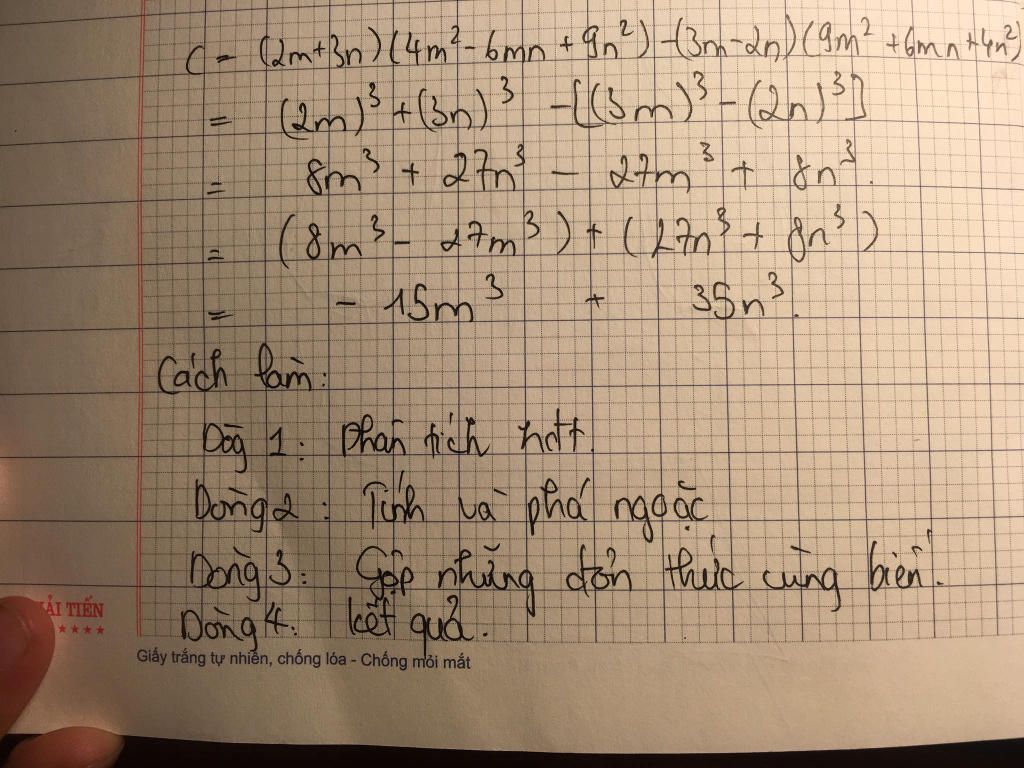 C = (2m+3n)(4m² - 6mn + 9n²) - (3m-2n)(9m² + 6mn + 4n²)
= (2m)³ + (3n)³ - [(3m)³ - (2n)³]
= 8m³ + 27n³ - 27m³ + 8n³.
= (8m³ - 27m³) + (27n³ + 8n³)
= - 15m³ + 35n³.
Cách làm:
Dòg 1: phân tích hđt.
Dòng 2: Tính và phá ngoặc
Dòng 3: Gộp những đơn thức cùng biến.
Dòng 4: kết quả.
ẢI TIẾN
★★★★
Giấy trắng tự nhiên, chống lóa - Chống mỏi mắt